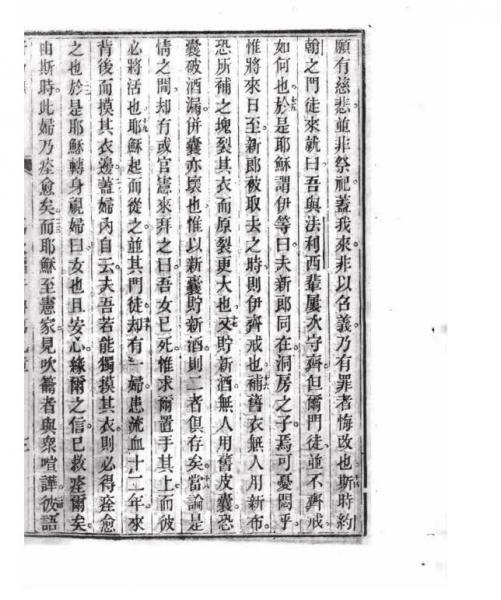 願有慈悲並非祭祀蓋我來非以召義乃有罪者悔改也斯時約
翰之門徒來就曰吾與法利西輩屢次守齊但爾門徒並不齊戒
如何也於是耶穌謂伊等曰夫新郎同在洞房之子焉可憂悶乎
惟將來日至新郎被取去之時則伊齊戒也補舊衣無人用新布
恐所補之塊裂其衣而原裂更大也又貯新酒無人用舊皮囊恐
囊破酒漏併囊亦壞也惟以新囊貯新酒則二者俱存矣當論是
情之間却有或官憲來拜之曰吾女已死惟求爾置手其上而彼
必將活也耶穌起而從之並其門徒却有一婦患流血十二年來
背後而摸其衣邊蓋婦內自云夫吾若能獨摸其衣則必得痊愈
之也於是耶穌轉身視婦曰女也且安心緣爾之信已救痊爾矣
由斯時此婦乃痊愈矣而耶穌至憲家見吹籥者與衆喧譁彼語